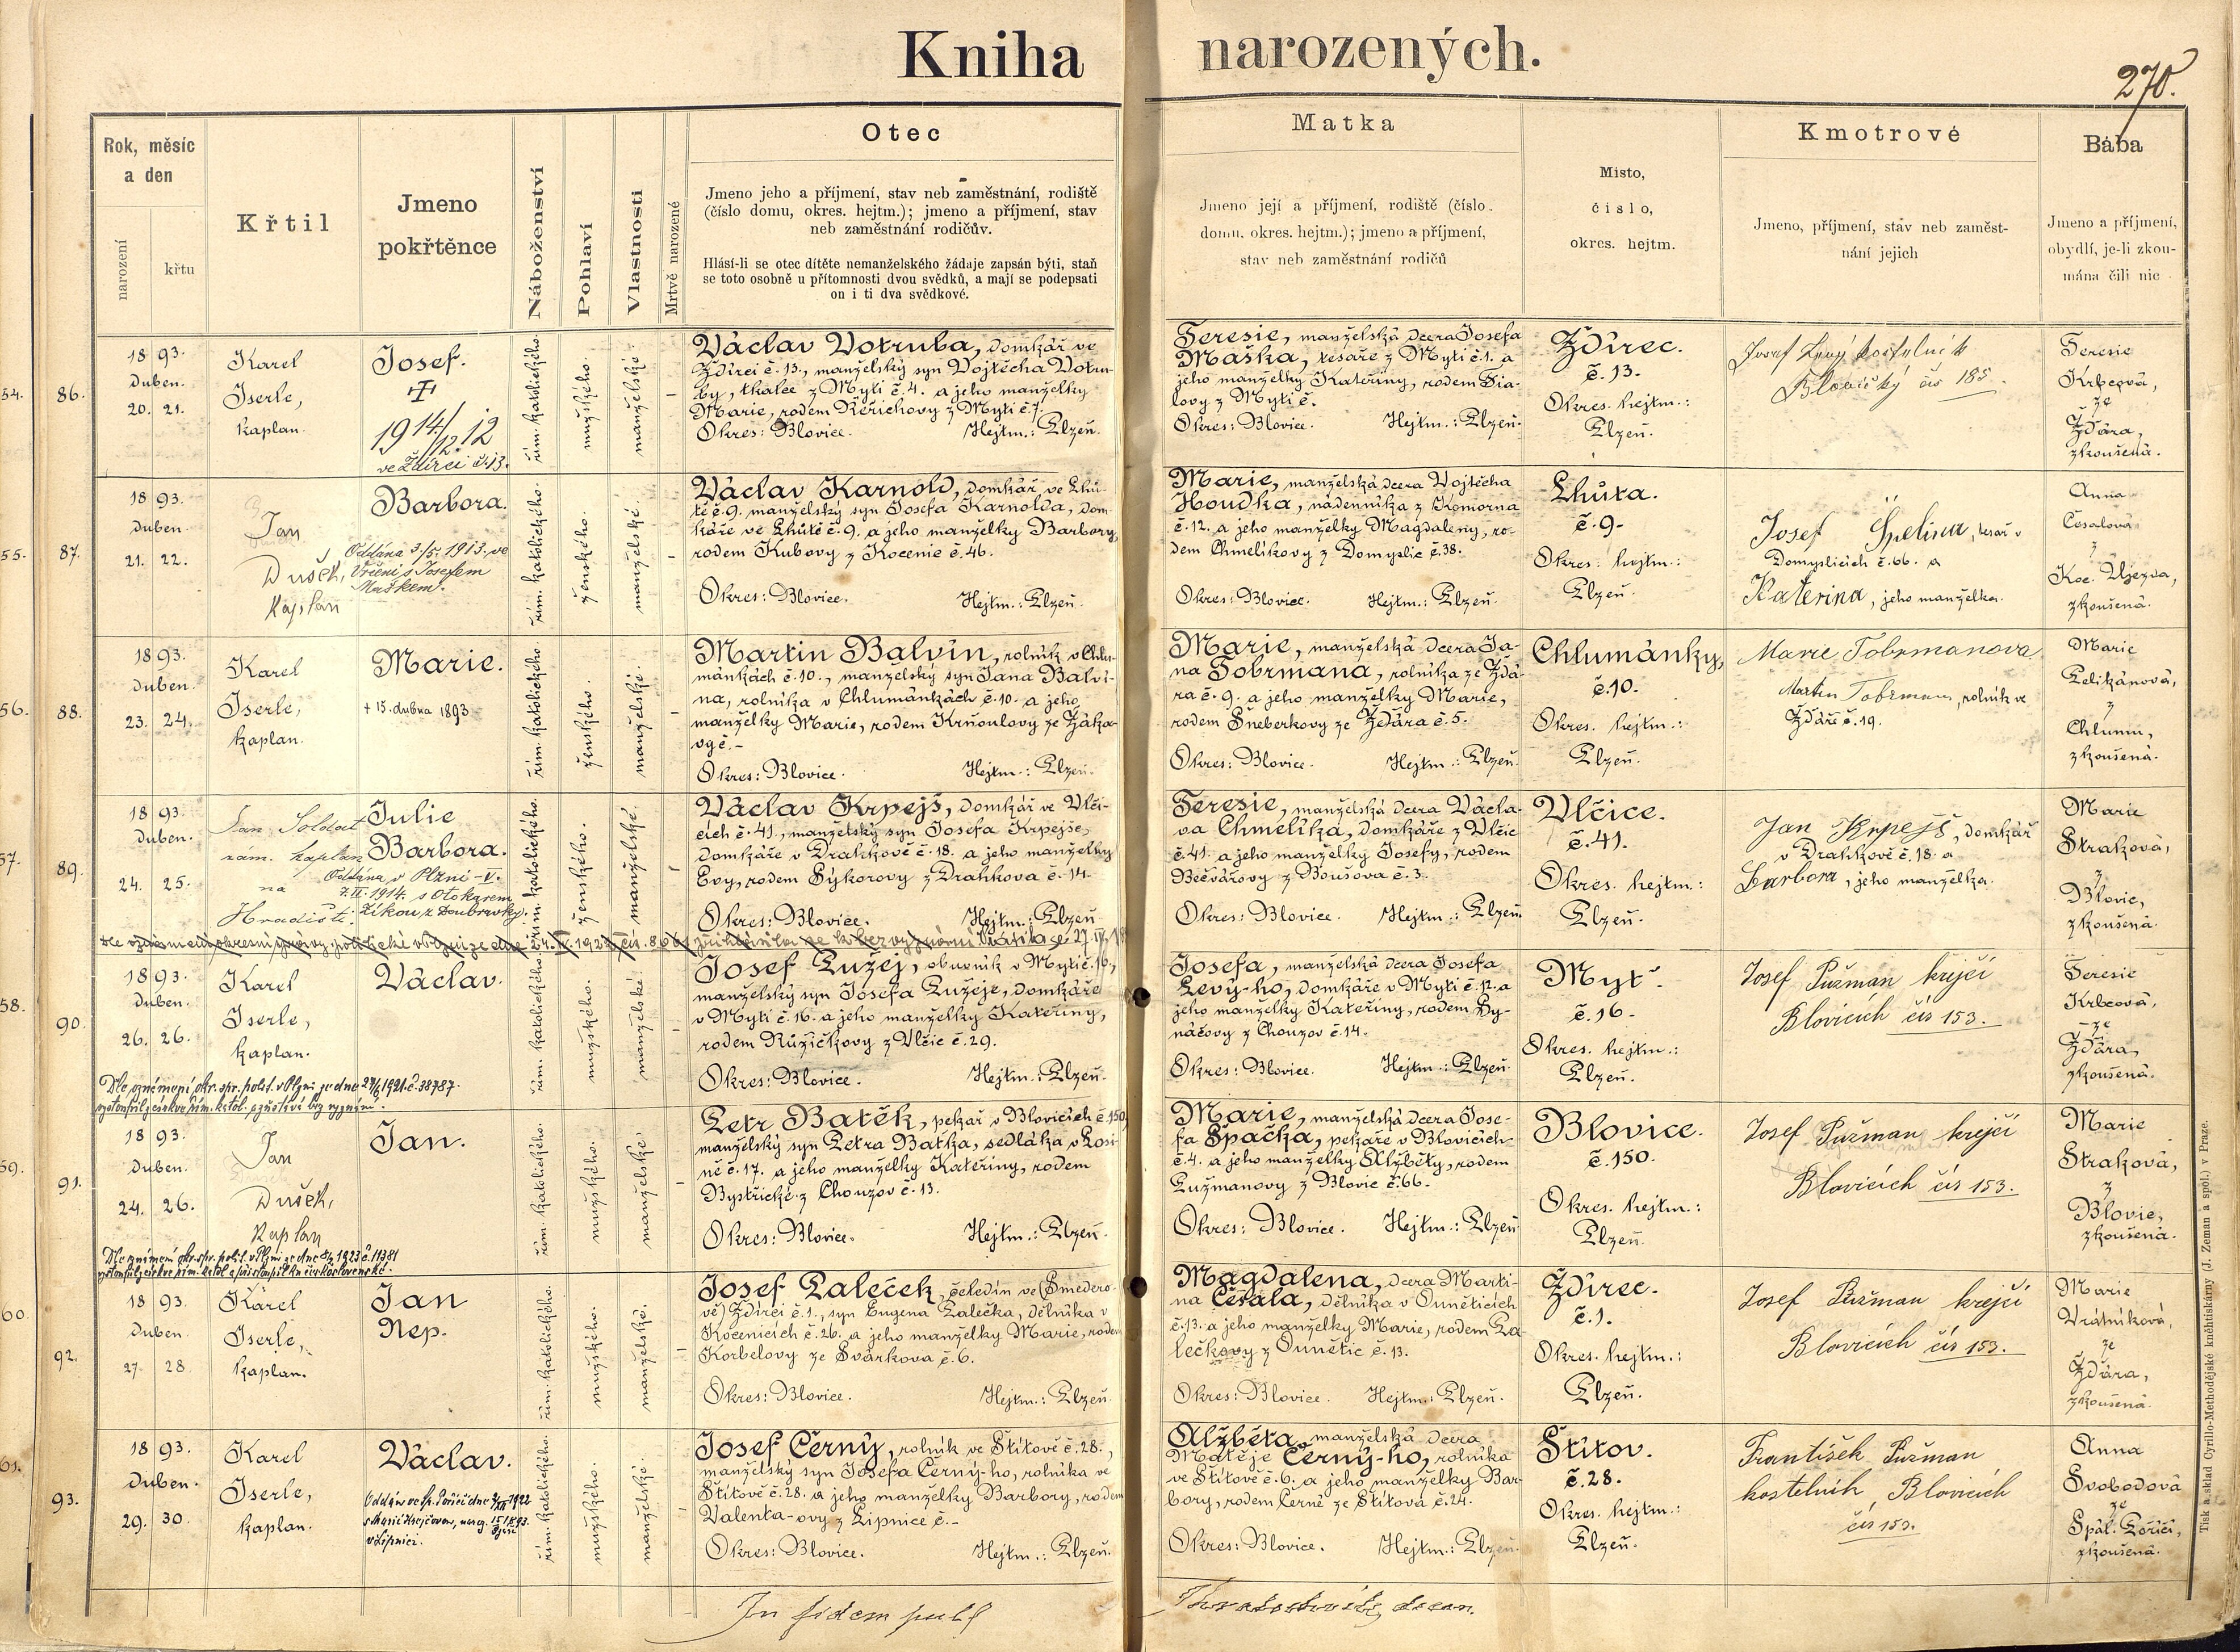 Kniha narozených.
270.
Rok, měsíc
a den
narození
křtu
Křtil
Jmeno
pokřtěnce
Náboženství
Pohlaví
Vlastnosti
Mrtvě narozené
Otec
Jmeno jeho a příjmení, stav neb zaměstnání, rodiště
(číslo domu, okres. hejtm.); jmeno a příjmení, stav
neb zaměstnání rodičův.
Hlásí-li se otec dítěte nemanželského žádaje zapsán býti, staň
se toto osobně u přítomnosti dvou svědků, a mají se podepsati
on i ti dva svědkové.
Matka
Jmeno její a příjmení, rodiště (číslo
domu, okres. hejtm.); jmeno a příjmení,
stav neb zaměstnání rodičů
Místo,
číslo,
okres. hejtm.
Kmotrové
Jmeno, příjmení, stav neb zaměst-
nání jejich
Bába
Jmeno a příjmení,
obydlí, je-li zkou-
mána čili nic
54.
86.
1893.
Duben.
20. 21.
Karel
Iserle,
kaplan.
Josef.
1914/12 12
ve Ždírci č. 13.
řím. katolického.
mužského.
manželské.
–
Václav Votruba, domkář ve
Ždírci č. 13., manželský syn Vojtěcha Votru-
by, tkalce z Mýti č. 4. a jeho manželky
Marie, rodem Řeřichovy z Mýti č. 7.
Okres: Blovice. Hejtm.: Plzeň.
Teresie, manželská dcera Josefa
Maška, tesaře z Mýti č. 1. a
jeho manželky Kateřiny, rodem Fia-
lovy z Mýti č.
Okres: Blovice. Hejtm.: Plzeň.
Ždírec.
č. 13.
Okres. hejtm.:
Plzeň.
Josef Levý kostelník
Blovický čís 185.
Teresie
Krbcová,
ze
Žďára,
zkoušená.
55.
87.
1893.
Duben.
21. 22.
Jan
Dušek,
Kaplan
Barbora.
Oddána 3/5. 1913. ve
Vrčeni s Josefem
Maškem.
řím. katolického.
ženského.
manželské.
–
Václav Karnold, domkář ve Lhů-
tě č. 9. manželský syn Josefa Karnolda, dom-
káře ve Lhůtě č. 9. a jeho manželky Barbory,
rodem Kubovy z Kocenic č. 46.
Okres: Blovice. Hejtm.: Plzeň.
Marie, manželská dcera Vojtěcha
Houdka, nádenníka z Komorna
č. 12. a jeho manželky Magdaleny, ro-
dem Chmelíkovy z Domyslic č. 38.
Okres: Blovice. Hejtm.: Plzeň.
Lhůta.
č. 9.
Okres. hejtm.:
Plzeň.
Josef Špelina, tesař v
Domyslicích č. 66. a
Kateřina, jeho manželka.
Anna
Česalová
z
Koc. Újezda,
zkoušená.
56.
88.
1893.
Duben.
23. 24.
Karel
Iserle,
kaplan.
Marie.
+ 15. dubna 1893
řím. katolického.
ženského.
manželské.
–
Martin Balvín, rolník v Chlu-
mánkách č. 10., manželský syn Jana Balví-
na, rolníka v Chlumánkách č. 10. a jeho
manželky Marie, rodem Krňoulovy ze Žáka-
vy č. –
Okres: Blovice. Hejtm.: Plzeň.
Marie, manželská dcera Ja-
na Tobrmana, rolníka ze Žďá-
ra č. 9. a jeho manželky Marie,
rodem Šneberkovy ze Žďára č. 5.
Okres: Blovice. Hejtm.: Plzeň.
Chlumánky,
č. 10.
Okres. hejtm.:
Plzeň.
Marie Tobrmanova
Martin Tobrman, rolník ve
Žďáře č. 19.
Marie
Pelikánová,
z
Chlumu,
zkoušená.
57.
89.
1893.
Duben.
24. 25.
Jan Soldat
nám. kaplan
na
Hradišti.
Julie
Barbora.
Oddána v Plzni – V.
7. II. 1914. s Otokarem
Zíkou, z Doubravky.
řím. katolického.
ženského.
manželské.
–
Václav Krpejš, domkář ve Vlči-
cích č. 41., manželský syn Josefa Krpejše,
domkáře v Drahkově č. 18. a jeho manželky
Evy, rodem Sýkorovy z Drahkova č. 14.
Okres: Blovice. Hejtm.: Plzeň
Teresie, manželská dcera Václa-
va Chmelíka, domkáře z Vlčic
č. 41. a jeho manželky Josefy, rodem
Bečvářovy z Boušova č. 3.
Okres: Blovice. Hejtm.: Plzeň.
Vlčice.
č. 41.
Okres. hejtm.:
Plzeň.
Jan Krpejš, domkář
v Drahkově č. 18. a
Barbora, jeho manželka.
Marie
Straková,
z
Blovic,
zkoušená.
58.
90.
1893.
Duben.
26. 26.
Karel
Iserle,
kaplan.
Václav.
Dle oznámení okr. spr. polit. v Plzni ze dne 27/6 1921 č. 38787.
vystoupil z církve řím. katol. a zůstává bez vyznání.
řím. katolického.
mužského.
manželské.
–
Josef Lužej, obuvník v Mýti č. 16,
manželský syn Josefa Lužeje, domkáře
v Mýti č. 16. a jeho manželky Kateřiny,
rodem Růžičkovy z Vlčic č. 29.
Okres: Blovice. Hejtm.: Plzeň.
Josefa, manželská dcera Josefa
Levý-ho, domkáře v Mýti č. 12. a
jeho manželky Kateřiny, rodem Ry-
náčovy z Chouzov č. 14.
Okres: Blovice. Hejtm.: Plzeň.
Mýť.
č. 16.
Okres. hejtm.:
Plzeň.
Josef Pužman krejčí
Blovicích čís 153.
Teresie
Krbcová,
ze
Žďára,
zkoušená.
59.
91.
1893.
Duben.
24. 26.
Jan
Dušek,
Kaplan
Jan.
řím. katolického.
mužského.
manželské.
–
Petr Batěk, pekař v Blovicích č. 150,
manželský syn Petra Baťka, sedláka v Losi-
né č. 17. a jeho manželky Kateřiny, rodem
Bystřické z Chouzov č. 13.
Okres: Blovice. Hejtm.: Plzeň.
Marie, manželská dcera Jose-
fa Špačka, pekaře v Blovicích
č. 4. a jeho manželky Alžběty, rodem
Pužmanovy z Blovic č. 66.
Okres: Blovice. Hejtm.: Plzeň
Blovice.
č. 150.
Okres. hejtm.:
Plzeň.
Josef Pužman krejčí
Blovicích čís 153.
Marie
Straková,
z
Blovic,
zkoušená.
60.
92.
1893.
Duben
27. 28.
Karel
Iserle,
kaplan.
Jan
Nep.
řím. katolického.
mužského.
manželské.
–
Josef Paleček, čeledín ve (Smedero-
vě) Ždírci č. 1., syn Eugena Palečka, dělníka v
Kocenicích č. 26. a jeho manželky Marie, rodem
Korbelovy ze Svárkova č. 6.
Okres: Blovice. Hejtm.: Plzeň.
Magdalena, dcera Marti-
na Česala, dělníka v Ouněticích
č. 13. a jeho manželky Marie, rodem Pa-
lečkovy z Ounětic č. 13.
Okres: Blovice. Hejtm.: Plzeň.
Ždírec.
č. 1.
Okres. hejtm.:
Plzeň.
Josef Pužman krejčí
Blovicích čís 153.
Marie
Vrátníková,
ze
Žďára,
zkoušená.
61.
93.
1893.
Duben.
29. 30.
Karel
Iserle,
kaplan.
Václav.
v Lipnici.
řím. katolického.
mužského.
manželské.
–
Josef Černý, rolník ve Štítově č. 28.,
manželský syn Josefa Černý-ho, rolníka ve
Štítově č. 28. a jeho manželky Barbory, rodem
Valenta-ovy z Lipnice č. –
Okres: Blovice. Hejtm.: Plzeň.
Alžběta, manželská dcera
Matěje Černý-ho, rolníka
ve Štítově č. 6. a jeho manželky Bar-
bory, rodem Černé ze Štítova č. 24.
Okres: Blovice. Hejtm.: Plzeň.
Štítov.
č. 28.
Okres. hejtm.:
Plzeň.
František Pužman
kostelník Blovicích
čís 153.
Anna
Svobodová
ze
Spál. Poříčí,
zkoušená.
In fidem publ
decan.
Tisk a sklad Cyrillo-Methodějské knihtiskárny (J. Zeman a spol.) v Praze.